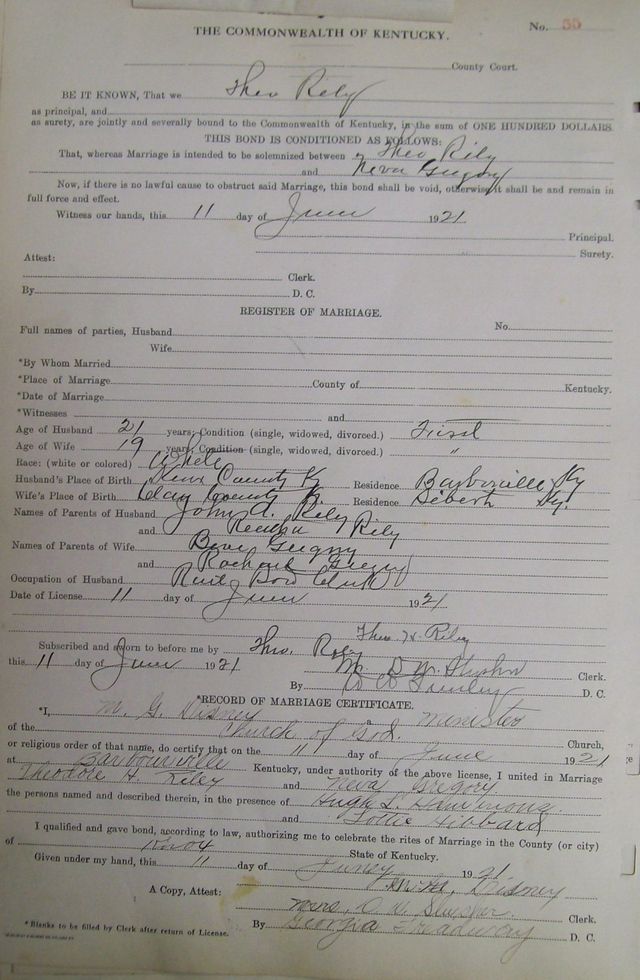 No. 55
THE COMMONWEALTH OF KENTUCKY.
County Court.
BE IT KNOWN, That we Theo Rily
as principal, and
as surety, are jointly and severally bound to the Commonwealth of Kentucky, in the sum of ONE HUNDRED DOLLARS.
THIS BOND IS CONDITIONED AS FOLLOWS:
That, whereas Marriage is intended to be solemnized between Theo Rily
and Neva Gregory
Now, if there is no lawful cause to obstruct said Marriage, this bond shall be void, otherwise it shall be and remain in
full force and effect.
Witness our hands, this 11 day of June 1921
Principal.
Surety.
Attest:
Clerk.
By D. C.
REGISTER OF MARRIAGE.
Full names of parties, Husband No.
Wife
*By Whom Married
*Place of Marriage County of Kentucky.
*Date of Marriage
*Witnesses and
Age of Husband 21 years; Condition (single, widowed, divorced.) First
Age of Wife 19 years; Condition (single, widowed, divorced.) "
Race: (white or colored) White
Husband's Place of Birth Knox County Ky Residence Barbourville Ky
Wife's Place of Birth Clay County Residence Sibert Ky.
Names of Parents of Husband John A. Rily
and Rily
Names of Parents of Wife Gregory
and Gregory
Occupation of Husband Clerk
Date of License 11 day of June 1921
Theo. H. Riley
Subscribed and sworn to before me by Theo. Rily
this 11 day of June 1921 Clerk.
By D. C.
*RECORD OF MARRIAGE CERTIFICATE.
*I, M. G. Disney Minister
of the Church of God. Church,
or religious order of that name, do certify that on the 11 day of June 1921
at Barbourville Kentucky, under authority of the above license, I united in Marriage
Theodore H. Riley and Neva Gregory
the persons named and described therein, in the presence of Hugh L.
and Lottie Hibbard
I qualified and gave bond, according to law, authorizing me to celebrate the rites of Marriage in the County (or city)
of Knox State of Kentucky.
Given under my hand, this 11 day of 1921
Disney
A Copy, Attest:
Clerk.
By Georgia D. C.
* Blanks to be filled by Clerk after return of License.